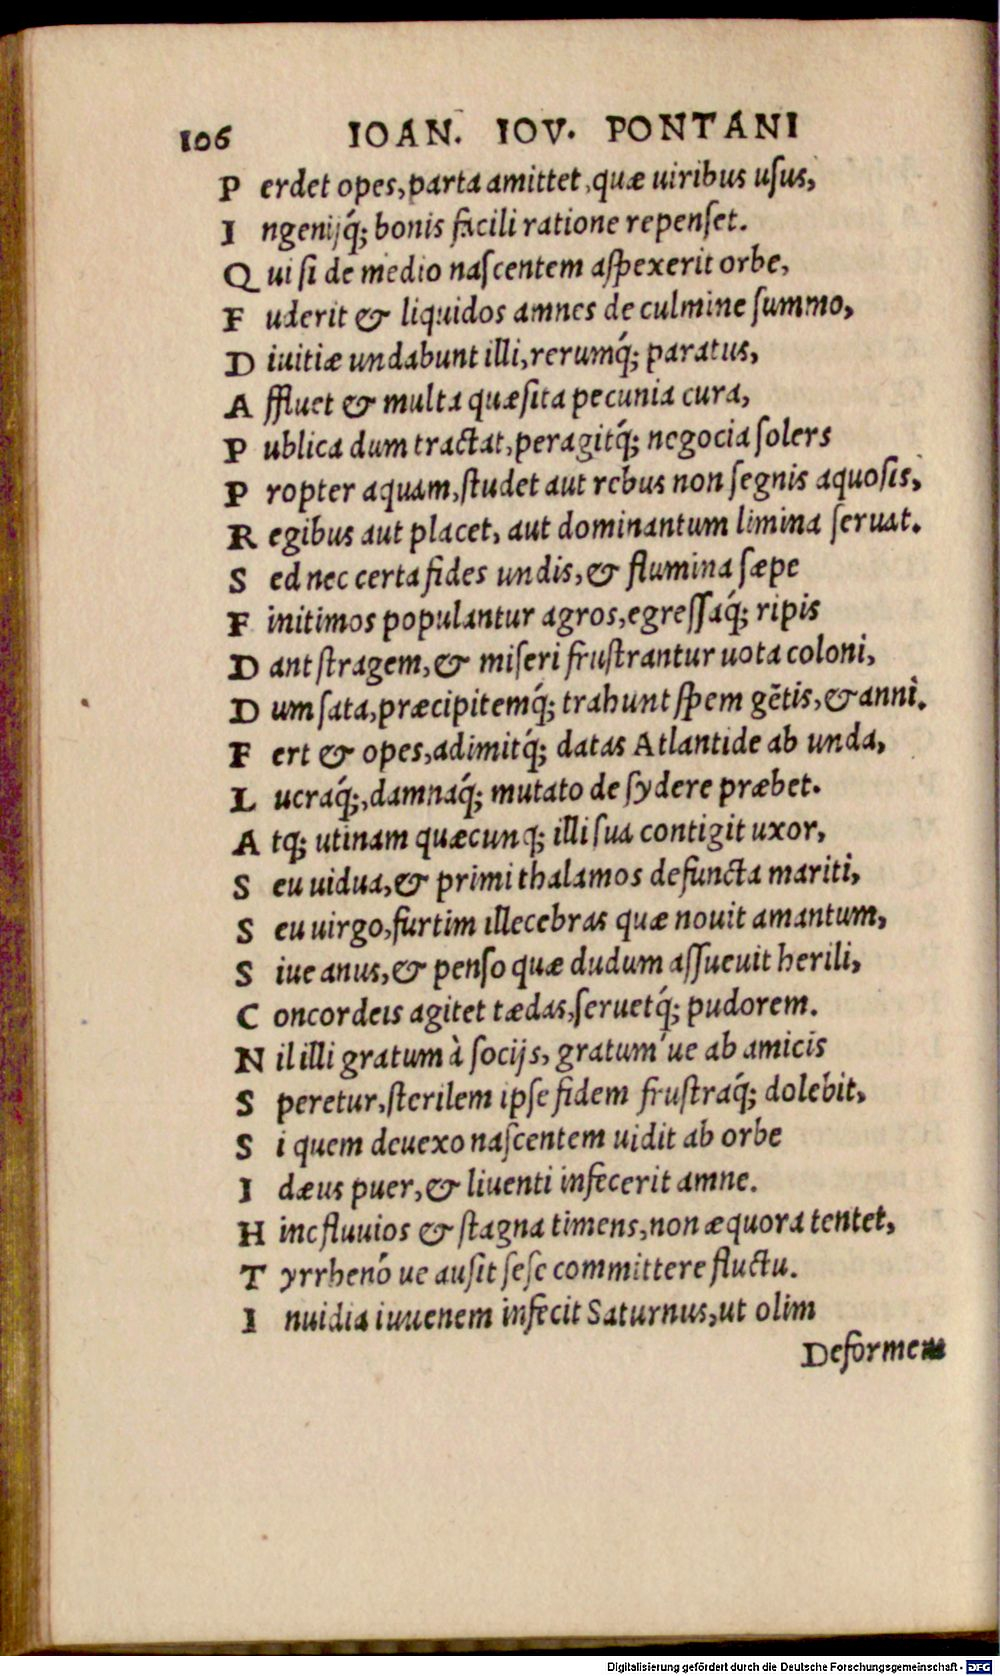 106 IOAN. IOV. PONTANI
P erdet opes, parta amittet, quæ uiribus usus,
I ngenijq́; bonis facili ratione repenset.
Q ui si de medio nascentem aspexerit orbe,
F uderit & liquidos amnes de culmine summo,
D iuitiæ undabunt illi, rerumq́; paratus,
A ffluet & multa quæsita pecunia cura,
P ublica dum tractat, peragitq́; negocia solers
P ropter aquam, studet aut rebus non segnis aquosis,
R egibus aut placet, aut dominantum limina seruat.
S ed nec certa fides undis, & flumina sæpe
F initimos populantur agros, egressaq́; ripis
D ant stragem, & miseri frustrantur uota coloni,
D um sata, præcipitemq́; trahunt spem gẽtis, & anni.
F ert & opes, adimitq́; datas Atlantide ab unda,
L ucraq́;, damnaq́; mutato de sydere præbet.
A tq; utinam quæcunq; illi sua contigit uxor,
S eu uidua, & primi thalamos defuncta mariti,
S eu uirgo, furtim illecebras quæ nouit amantum,
S iue anus, & penso quæ dudum assueuit herili,
C oncordeis agitet tædas, seruetq́; pudorem.
N il illi gratum à socijs, gratum´ue ab amicis
S peretur, sterilem ipse fidem frustraq́; dolebit,
S i quem deuexo nascentem uidit ab orbe
I dæus puer, & liuenti infecerit amne.
H inc fluuios & stagna timens, non æquora tentet,
T yrrhenó ue ausit sese committere fluctu.
I nuidia iuuenem infecit Saturnus, ut olim
Deformem
Digitalisierung gefördert durch die Deutsche Forschungsgemeinschaft - DFG